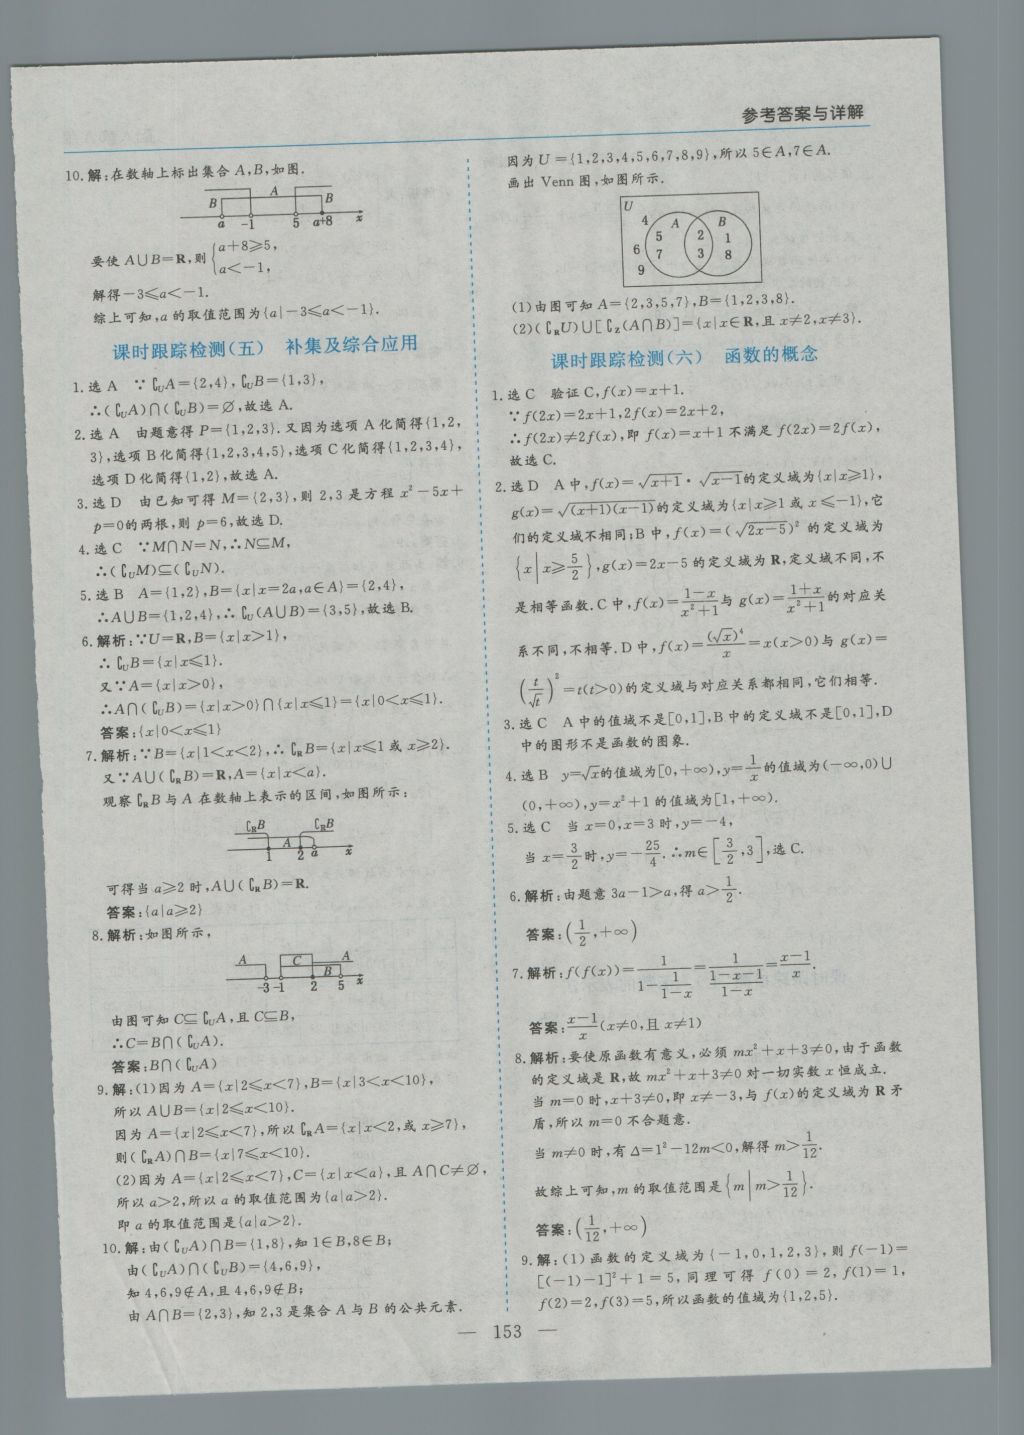 参考答案与详解
10.解:在数轴上标出集合 A,B,如图.
B A B
a -1 5 a+8 x
要使 A∪B=R,则{a+8⩾5,
a<-1,
解得-3⩽a<-1.
综上可知,a 的取值范围为{a|-3⩽a<-1}.
课时跟踪检测(五) 补集及综合应用
1.选 A ∵∁UA={2,4},∁UB={1,3},
∴(∁UA)∩(∁UB)=∅,故选 A.
2.选 A 由题意得 P={1,2,3}.又因为选项 A 化简得{1,2,
3},选项 B 化简得{1,2,3,4,5},选项 C 化简得{1,2,3,4},
选项 D 化简得{1,2},故选 A.
3.选 D 由已知可得 M={2,3},则 2,3 是方程 x²-5x+
p=0的两根,则 p=6,故选 D.
4.选 C ∵M∩N=N,∴N⊆M,
∴(∁UM)⊆(∁UN).
5.选 B A={1,2},B={x|x=2a,a∈A}={2,4},
∴A∪B={1,2,4},∴∁U(A∪B)={3,5},故选 B.
6.解析:∵U=R,B={x|x>1},
∴∁UB={x|x⩽1}.
又∵A={x|x>0},
∴A∩(∁UB)={x|x>0}∩{x|x⩽1}={x|0<x⩽1}.
答案:{x|0<x⩽1}
7.解析:∵B={x|1<x<2},∴∁RB={x|x⩽1 或 x⩾2}.
又∵A∪(∁RB)=R,A={x|x<a}.
观察∁RB 与 A 在数轴上表示的区间,如图所示:
∁RB ∁RB
A
1 2 a x
可得当 a⩾2 时,A∪(∁RB)=R.
答案:{a|a⩾2}
8.解析:如图所示,
A C A
B
-3 -1 2 5 x
由图可知 C⊆∁UA,且 C⊆B,
∴C=B∩(∁UA).
答案:B∩(∁UA)
9.解:(1)因为 A={x|2⩽x<7},B={x|3<x<10},
所以 A∪B={x|2⩽x<10}.
因为 A={x|2⩽x<7},所以∁RA={x|x<2,或 x⩾7},
则(∁RA)∩B={x|7⩽x<10}.
(2)因为 A={x|2⩽x<7},C={x|x<a},且 A∩C≠∅,
所以 a>2,所以 a 的取值范围为{a|a>2}.
即 a 的取值范围是{a|a>2}.
10.解:由(∁UA)∩B={1,8},知 1∈B,8∈B;
由(∁UA)∩(∁UB)={4,6,9},
知 4,6,9∉A,且 4,6,9∉B;
由 A∩B={2,3},知 2,3 是集合 A 与 B 的公共元素.
因为 U={1,2,3,4,5,6,7,8,9},所以 5∈A,7∈A.
画出 Venn 图,如图所示.
U
4 A B
5 2 1
6 7 3 8
9
(1)由图可知 A={2,3,5,7},B={1,2,3,8}.
(2)(∁RU)∪[∁Z(A∩B)]={x|x∈R,且 x≠2,x≠3}.
课时跟踪检测(六) 函数的概念
1.选 C 验证 C,f(x)=x+1.
∵f(2x)=2x+1,2f(x)=2x+2,
∴f(2x)≠2f(x),即 f(x)=x+1 不满足 f(2x)=2f(x),
故选 C.
2.选 D A 中,f(x)=√(x+1)·√(x-1)的定义域为{x|x⩾1},
g(x)=√((x+1)(x-1))的定义域为{x|x⩾1 或 x⩽-1},它
们的定义域不相同;B 中,f(x)=(√(2x-5))² 的定义域为
{x|x⩾5/2},g(x)=2x-5 的定义域为 R,定义域不同,不
是相等函数.C 中,f(x)=(1-x)/(x²+1)与 g(x)=(1+x)/(x²+1)的对应关
系不同,不相等.D 中,f(x)=(√x)⁴/x=x(x>0)与 g(x)=
(t/√t)²=t(t>0)的定义域与对应关系都相同,它们相等.
3.选 C A 中的值域不是[0,1],B 中的定义域不是[0,1],D
中的图形不是函数的图象.
4.选 B y=√x的值域为[0,+∞),y=1/x的值域为(-∞,0)∪
(0,+∞),y=x²+1 的值域为[1,+∞).
5.选 C 当 x=0,x=3 时,y=-4,
当 x=3/2时,y=-25/4.∴m∈[3/2,3],选 C.
6.解析:由题意 3a-1>a,得 a>1/2.
答案:(1/2,+∞)
7.解析:f(f(x))=1/(1-1/(1-x))=1/((1-x-1)/(1-x))=(x-1)/x.
答案:(x-1)/x(x≠0,且 x≠1)
8.解析:要使原函数有意义,必须 mx²+x+3≠0,由于函数
的定义域是 R,故 mx²+x+3≠0 对一切实数 x 恒成立.
当 m=0 时,x+3≠0,即 x≠-3,与 f(x)的定义域为 R 矛
盾,所以 m=0 不合题意.
当 m≠0 时,有 Δ=1²-12m<0,解得 m>1/12.
故综上可知,m 的取值范围是{m|m>1/12}.
答案:(1/12,+∞)
9.解:(1)函数的定义域为{-1,0,1,2,3},则 f(-1)=
[(-1)-1]²+1=5,同理可得 f(0)=2,f(1)=1,
f(2)=2,f(3)=5,所以函数的值域为{1,2,5}.
— 153 —